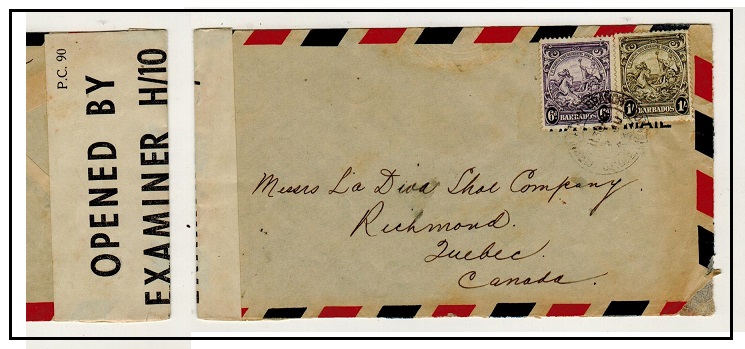 P.C. 90
OPENED BY
EXAMINER H/10
6d 6d
BARBADOS
1/- 1/-
BARBADOS
MAIL
Messrs La Diva Shoe Company
Richmond.
Quebec.
Canada.